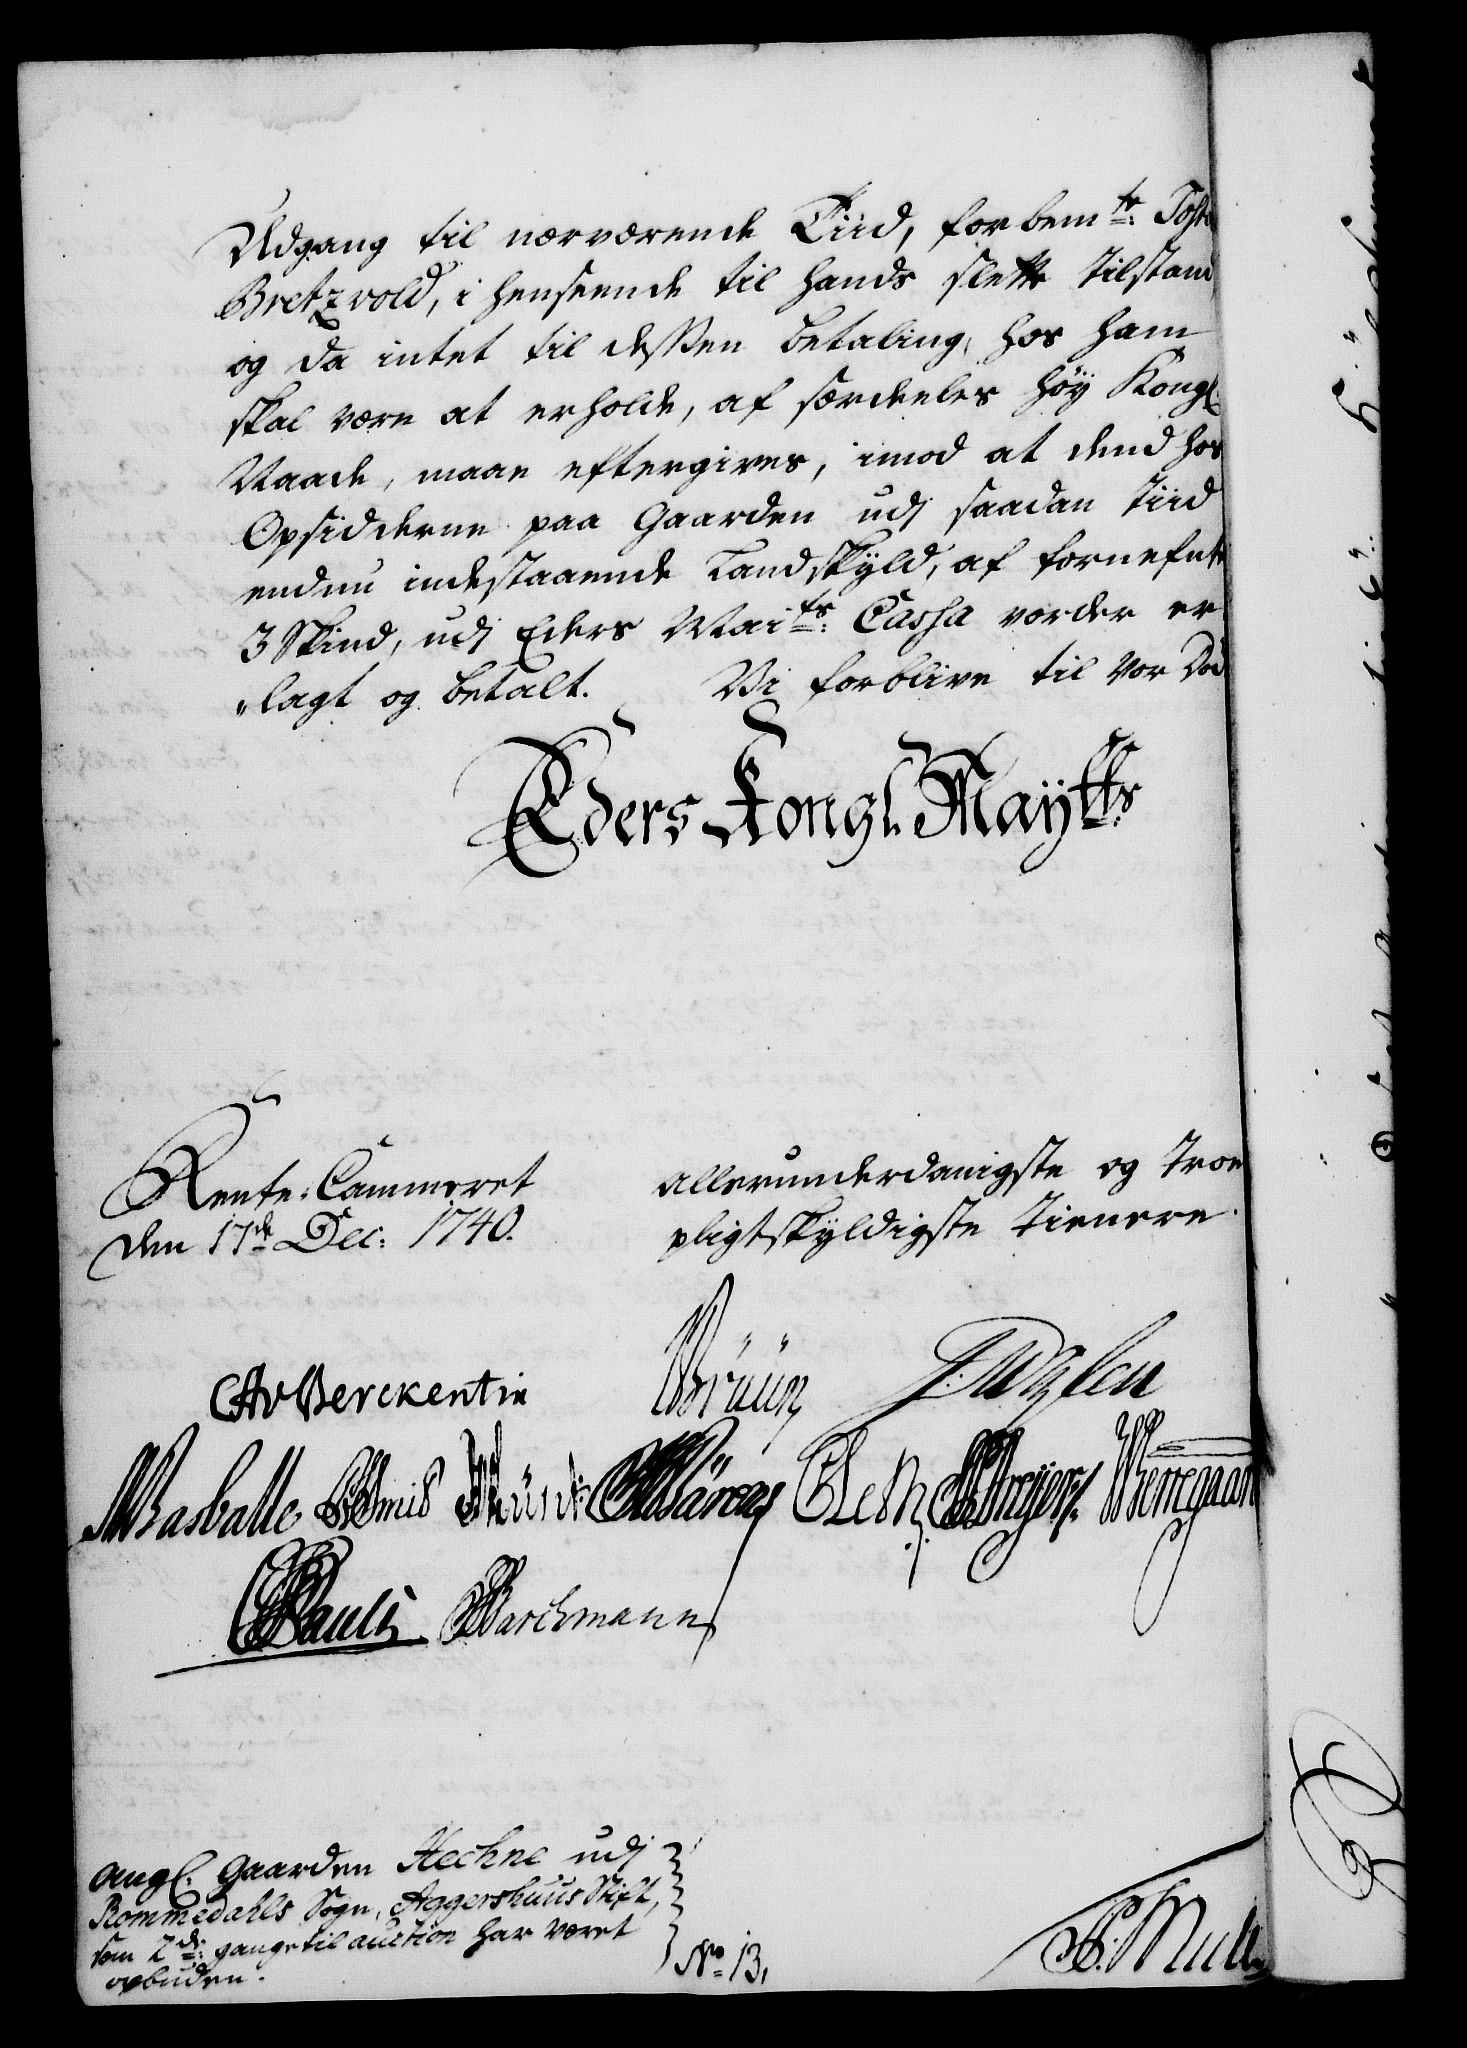 Udgang til nærværende Tiid, for bem.te: Toste
Bretzvold, i henseende til hands slette Tilstand
og da intet til dessen betaling, hos ham
skal være at erholde, af særdeeles høÿ Kongl:
Naade, maae eftergives, imod at dend hos
Opsidderne paa Gaarden udj saadan Tiid
endnu indestaaende Landskyld, af fornefnte
3 Skind, udj Eders Mai.ts: Cassa vorder er
„lagt og betalt. Vi forblive til vor Død
Eders Kongl. Maÿtts:
Rente-Cammeret
den 17de Dec: 1740.
allerunderdanigste og Troe
pligtskyldigste Tienere.
CAvBerckentin
Brüün
Basballe
Leth
Pauli
Barchmann
angl: Gaarden Hechne udj
Rommedahls Sogn, Aggershuus Stift,
som 2de: gange til auction har været
opbuden.
No. 13.